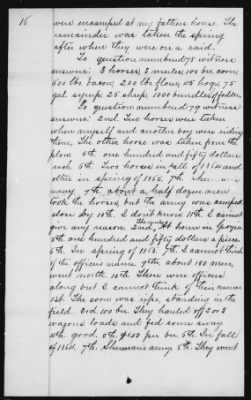 16
were encamped at my fathers house. The
remainder was taken the spring
after when they were on a raid.
To question numbered 78 witness
answers: 3 horses 3 mules 100 bu corn,
600 lbs bacon 200 lbs flour 115 hogs 75
gal. syrup 25 sheep, 1000 bundles of fodder.
To question numbered 79 witness
answers: 2nd. Two horses were taken
when myself and another boy were riding
them. The other horse was taken from the
plow. 5th one hundred and fifty dollars
each 6th. Two horses in fall of 1864 and
other in spring of 1865. 7th.
army. 9th. about a half dozen men
took the horses, but the army was camped
close by 10th. I don't know 11th I cannot
give any reason. 2nd, At home in
5th one hundred and fifty dollars a piece
6th. In spring of 1865 7th. I cannot think
of the officers name. 9th. about 150 men,
went north. 10th. There were officers
along but I cannot think of their names
1st. The corn was ripe, standing in the
field. 3rd 100 bu They hauled off 2 or 3
wagon loads and fed some away
4th. good. 5th $2.00 per bu 6th. In fall
of 1864. 7th. Shermans army. 8th. They went